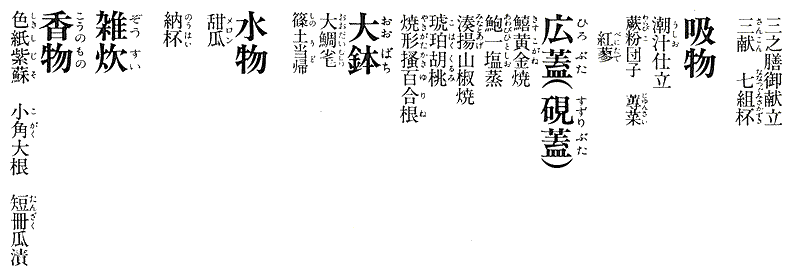 三之膳御献立
三献　七組杯
吸物
潮汁仕立
蕨粉団子　蓴菜
紅蓼
広蓋(硯蓋)
鱚黄金焼
鮑一塩蒸
湊揚山椒焼
琥珀胡桃
焼形掻百合根
大鉢
大鯛毟
篠土当帰
水物
甜瓜
納杯
雑炊
香物
色紙紫蘇　小角大根　短冊瓜漬